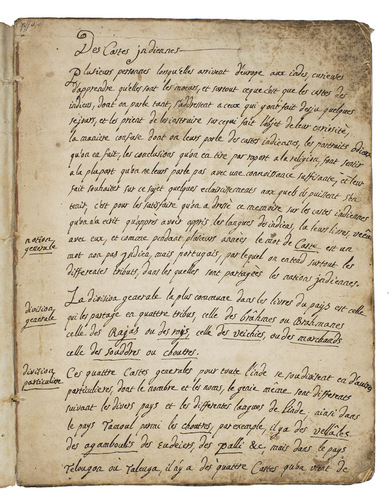 Des Castes jndiennes
Plusieurs personnes lorsqu'elles arrivent d'europe aux indes, curieuses
d'apprendre quelles sont les mœurs, et surtout ce que c'est que les castes des
indiens, dont on parle tant, s'addressent a ceux qui y ont fait desja quelques
sejours, et les prient de les instruire sur ce qui fait l'objet de leur curiosité,
la maniere confuse dont on leurs parle des castes indiennes, les portraits
qu'on en fait, les conclusions qu'on en tire par raport a la religion, font sentir
a la plupart qu'on ne leurs parle pas avec une connoissance suffisante, et leur
fait souhaitter sur ce sujet quelques eclaircissements aux quels ils puissent s'en
tenir, c'est pour les satisfaire qu'on a dressé ce memoire sur les castes indiennes
qu'on n'a ecrit qu'apres avoir appris les langues des indiens, lu leurs livres,
avec eux, et comme pendant plusieurs années le mot de Caste est un
mot non pas jndien, mais portugais, par lequel on entend surtout les
differentes tribus, dans les quelles sont partagées les nations jndiennes.
notion
generale
La division generale la plus commune dans les livres du païs est celle
qui les partage en quattre tribus, celle des brâhmes ou Brahmanes
celle des Rajas ou des rois, celle des veichies, ou des marchands
celle des soudres ou choutres.
division
generale
Ces quattre Castes generales pour toute l'inde se soudivisent en d'autres
particulieres, dont le nombre et les noms, le genie même sont differents
suivant les divers pays et les differentes langues de l'inde, ainsi dans
le pays Tamoul parmi les choutres, par exemple, il y a des vellâles
des agamboudis des Eudeiers, des palli &c, mais dans le pays
Telougou ou Talenga, il y a des quattre Castes qu'on vient de
division
particuliere